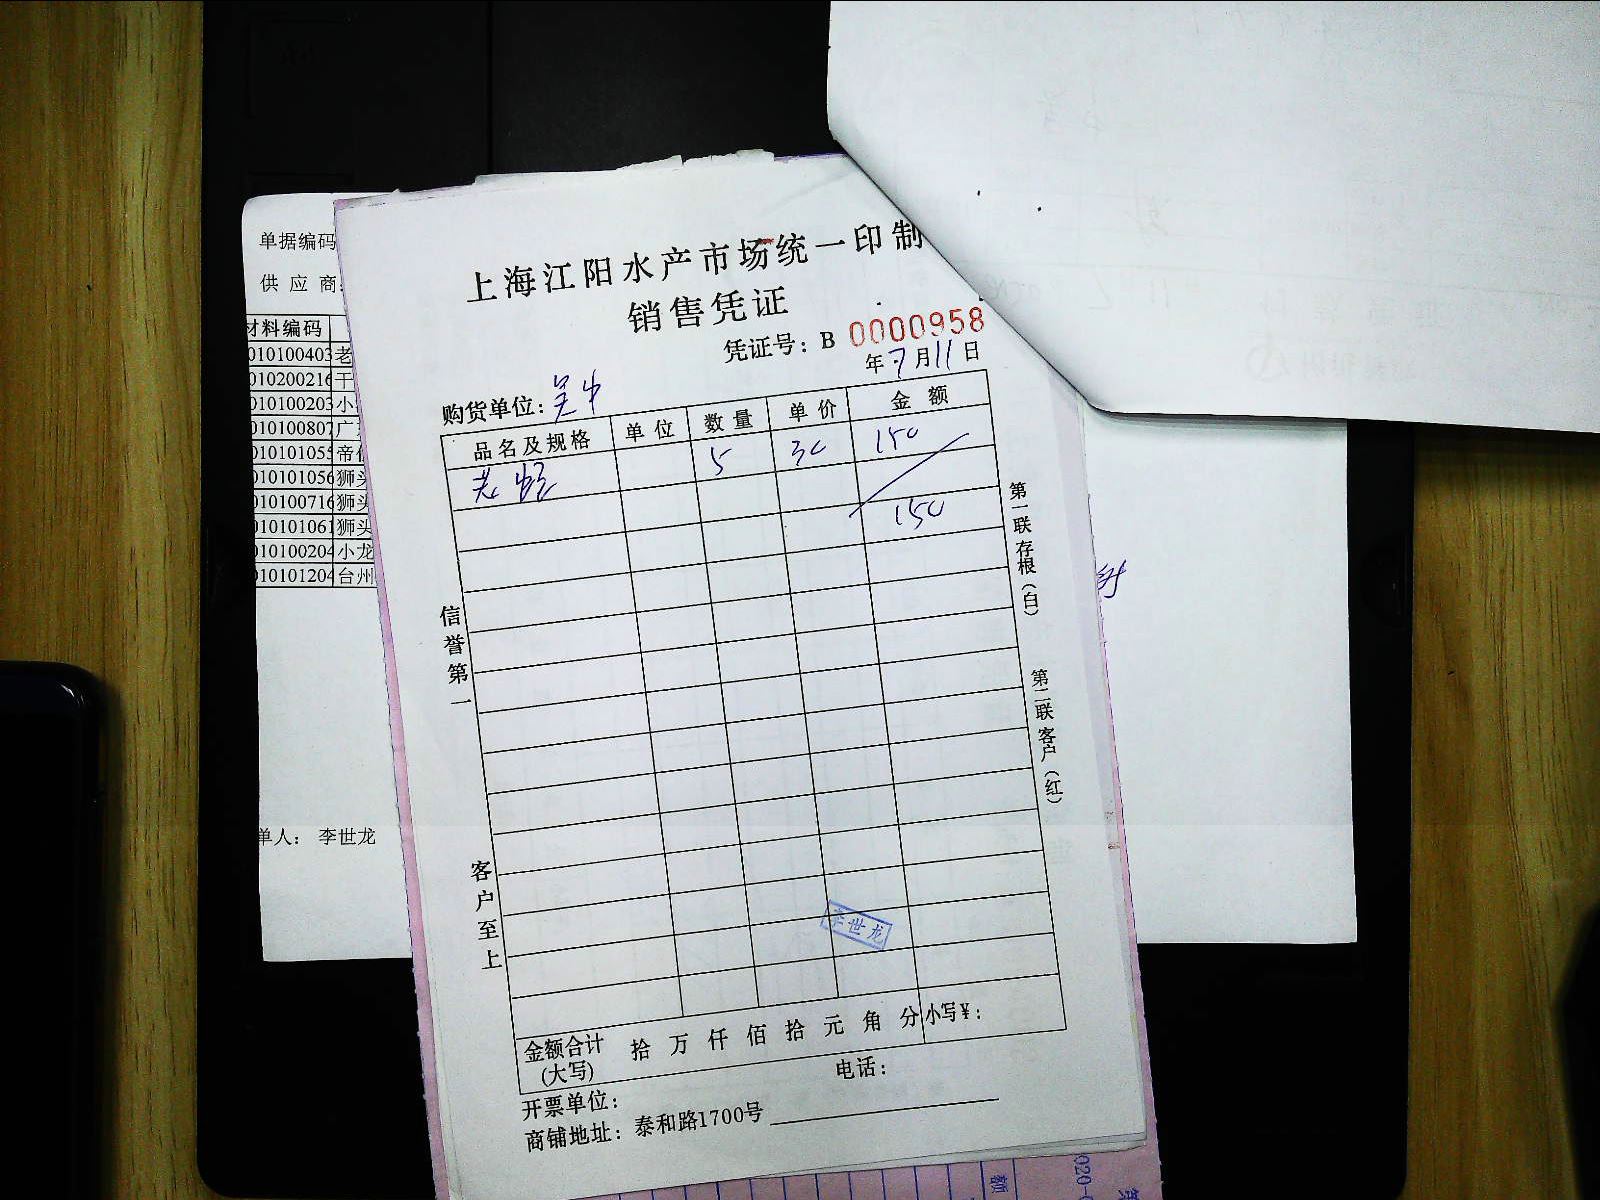 上海江阳水产市场统一印制
销售凭证
凭证号：B 0000958
年7月11日
购货单位：吴中
品名及规格 单位 数量 单价 金额
老蛏 5 30 150
150
信誉第一
客户至上
第一联存根（白）
第二联客户（红）
李世龙
金额合计(大写) 拾 万 仟 佰 拾 元 角 分 小写¥：
电话：
开票单位：
商铺地址：泰和路1700号
单据编码
供 应 商:
材料编码
010100403 老
010200216 干
010100203 小
010100807 广
010101055 帝
010101056 狮头
010100716 狮头
010101061 狮头
010100204 小龙
010101204 台州
单人： 李世龙
额